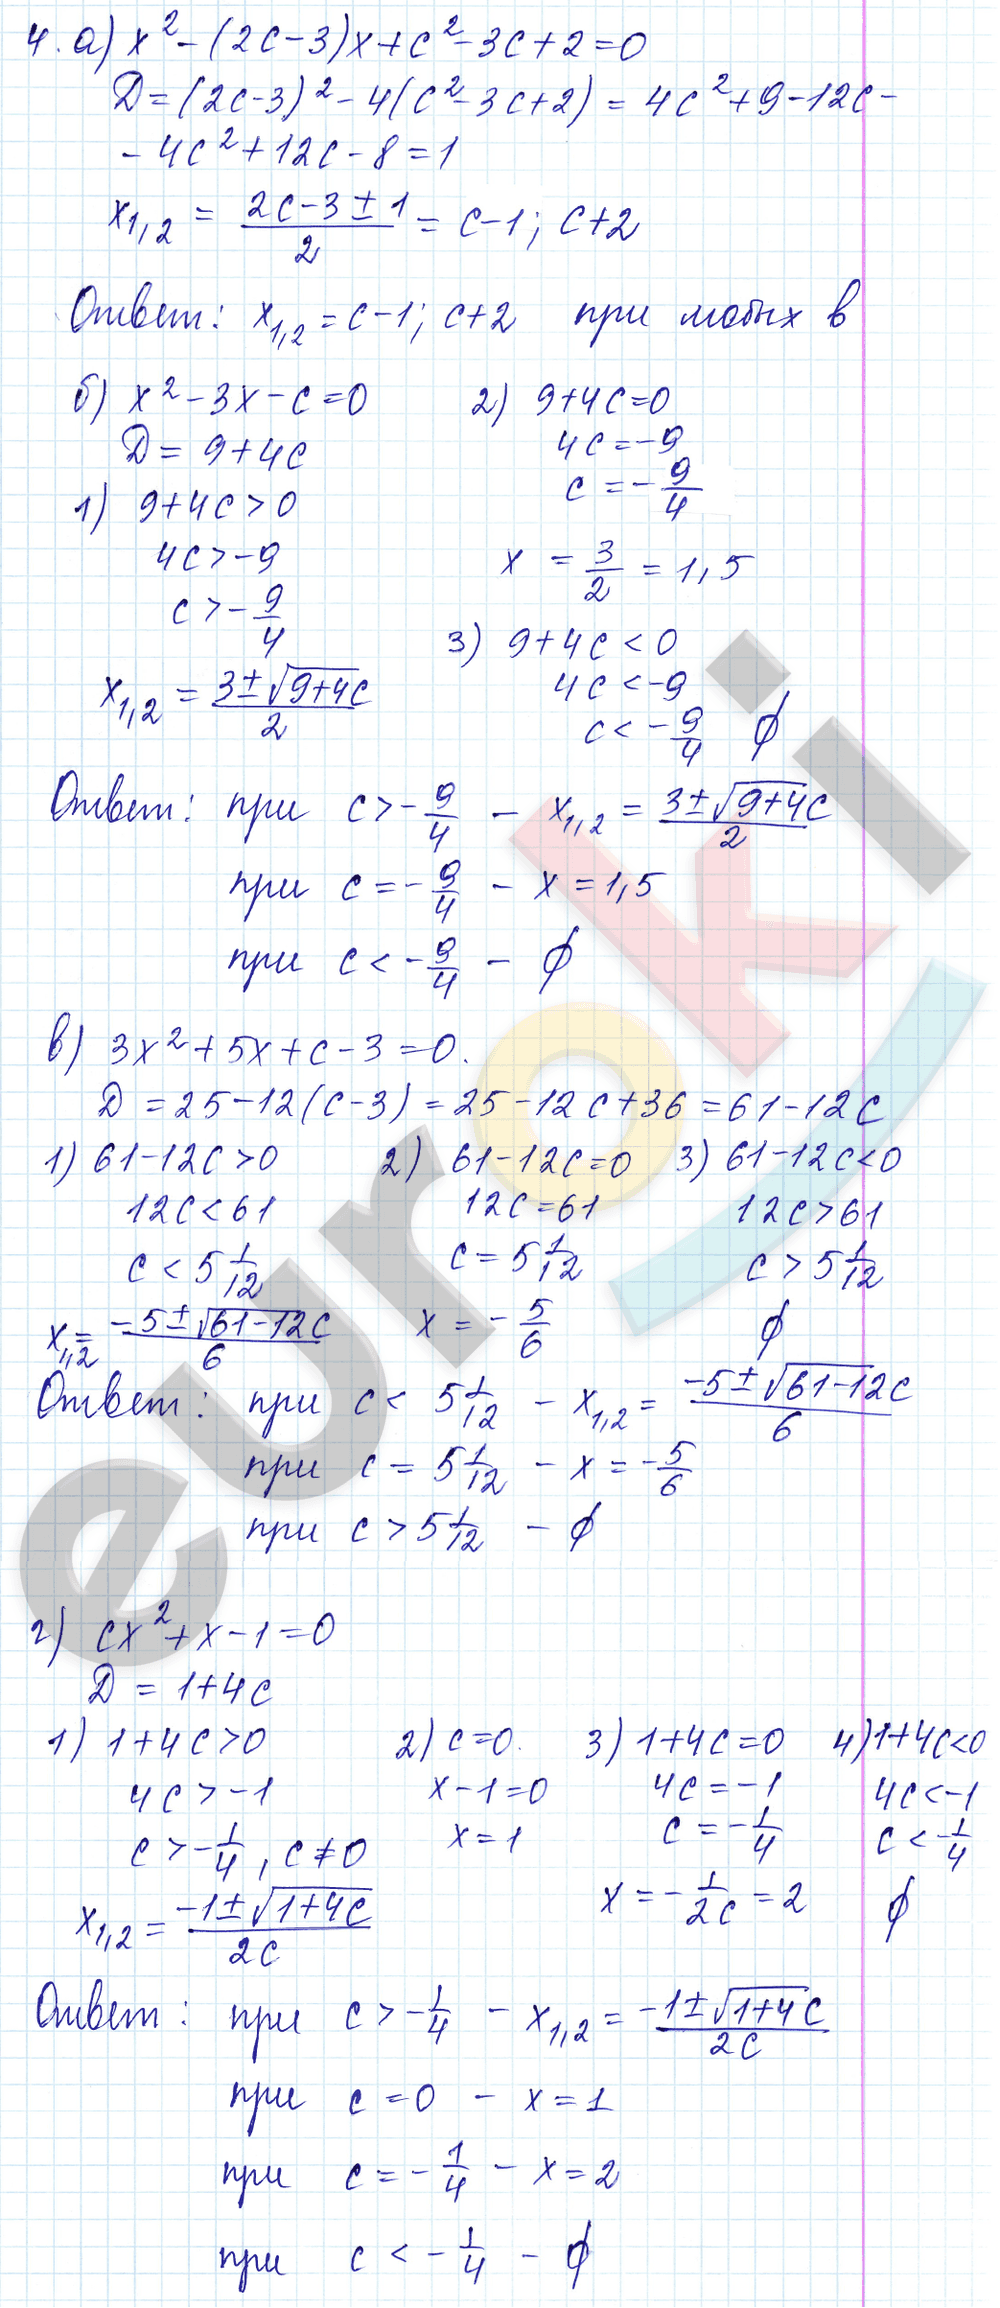 4. а) x² - (2c - 3)x + c² - 3c + 2 = 0
D = (2c - 3)² - 4(c² - 3c + 2) = 4c² + 9 - 12c -
- 4c² + 12c - 8 = 1
x₁,₂ = (2c - 3 ± 1)/2 = c - 1; c + 2
Ответ: x₁,₂ = c - 1; c + 2 при любых в
б) x² - 3x - c = 0
D = 9 + 4c
1) 9 + 4c > 0
4c > -9
c > -9/4
x₁,₂ = (3 ± √(9 + 4c))/2
2) 9 + 4c = 0
4c = -9
c = -9/4
x = 3/2 = 1,5
3) 9 + 4c < 0
4c < -9
c < -9/4 ∅
Ответ: при c > -9/4 - x₁,₂ = (3 ± √(9 + 4c))/2
при c = -9/4 - x = 1,5
при c < -9/4 - ∅
в) 3x² + 5x + c - 3 = 0.
D = 25 - 12(c - 3) = 25 - 12c + 36 = 61 - 12c
1) 61 - 12c > 0
12c < 61
c < 5 1/12
x₁,₂ = (-5 ± √(61 - 12c))/6
2) 61 - 12c = 0
12c = 61
c = 5 1/12
x = -5/6
3) 61 - 12c < 0
12c > 61
c > 5 1/12
∅
Ответ: при c < 5 1/12 - x₁,₂ = (-5 ± √(61 - 12c))/6
при c = 5 1/12 - x = -5/6
при c > 5 1/12 - ∅
г) cx² + x - 1 = 0
D = 1 + 4c
1) 1 + 4c > 0
4c > -1
c > -1/4, c ≠ 0
x₁,₂ = (-1 ± √(1 + 4c))/2c
2) c = 0.
x - 1 = 0
x = 1
3) 1 + 4c = 0
4c = -1
c = -1/4
x = -1/2c = 2
4) 1 + 4c < 0
4c < -1
c < -1/4
∅
Ответ: при c > -1/4 - x₁,₂ = (-1 ± √(1 + 4c))/2c
при c = 0 - x = 1
при c = -1/4 - x = 2
при c < -1/4 - ∅
euroki